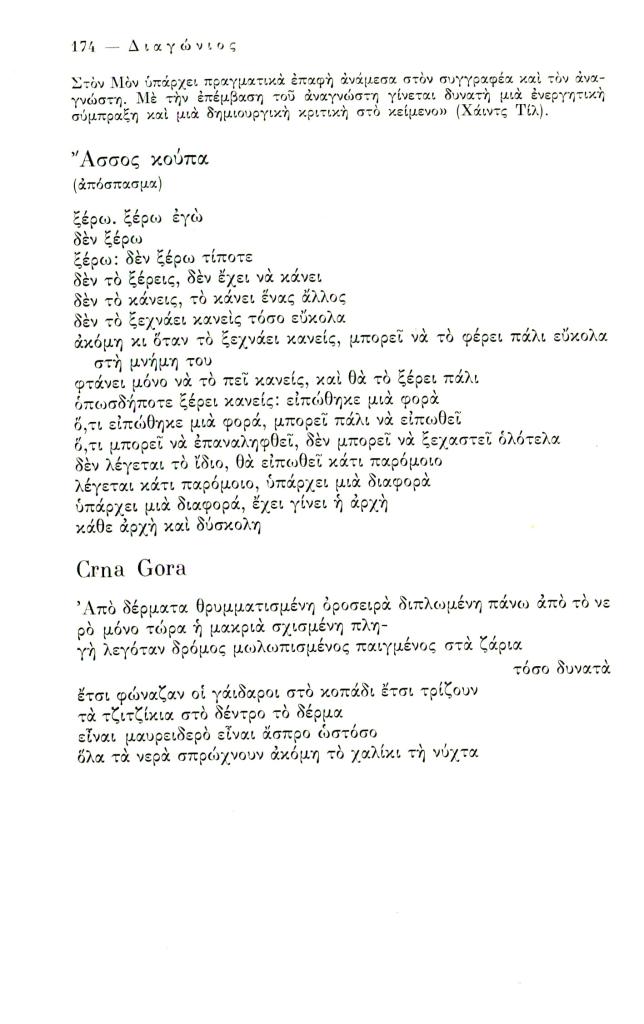 174 — Διαγώνιος
Στὸν Μὸν ὑπάρχει πραγματικὰ ἐπαφὴ ἀνάμεσα στὸν συγγραφέα καὶ τὸν ἀνα-
γνώστη. Μὲ τὴν ἐπέμβαση τοῦ ἀναγνώστη γίνεται δυνατὴ μιὰ ἐνεργητικὴ
σύμπραξη καὶ μιὰ δημιουργικὴ κριτικὴ στὸ κείμενο» (Χάιντς Τίλ).
Ἄσσος κούπα
(ἀπόσπασμα)
ξέρω. ξέρω ἐγὼ
δὲν ξέρω
ξέρω: δὲν ξέρω τίποτε
δὲν τὸ ξέρεις, δὲν ἔχει νὰ κάνει
δὲν τὸ κάνεις, τὸ κάνει ἕνας ἄλλος
δὲν τὸ ξεχνάει κανεὶς τόσο εὔκολα
ἀκόμη κι ὅταν τὸ ξεχνάει κανείς, μπορεῖ νὰ τὸ φέρει πάλι εὔκολα
στὴ μνήμη του
φτάνει μόνο νὰ τὸ πεῖ κανείς, καὶ θὰ τὸ ξέρει πάλι
ὁπωσδήποτε ξέρει κανείς: εἰπώθηκε μιὰ φορὰ
ὅ,τι εἰπώθηκε μιὰ φορά, μπορεῖ πάλι νὰ εἰπωθεῖ
ὅ,τι μπορεῖ νὰ ἐπαναληφθεῖ, δὲν μπορεῖ νὰ ξεχαστεῖ ὁλότελα
δὲν λέγεται τὸ ἴδιο, θὰ εἰπωθεῖ κάτι παρόμοιο
λέγεται κάτι παρόμοιο, ὑπάρχει μιὰ διαφορὰ
ὑπάρχει μιὰ διαφορά, ἔχει γίνει ἡ ἀρχὴ
κάθε ἀρχὴ καὶ δύσκολη
Crna Gora
Ἀπὸ δέρματα θρυμματισμένη ὀροσειρὰ διπλωμένη πάνω ἀπὸ τὸ νε
ρὸ μόνο τώρα ἡ μακριὰ σχισμένη πλη-
γὴ λεγόταν δρόμος μωλωπισμένος παιγμένος στὰ ζάρια
τόσο δυνατὰ
ἔτσι φώναζαν οἱ γάιδαροι στὸ κοπάδι ἔτσι τρίζουν
τὰ τζιτζίκια στὸ δέντρο τὸ δέρμα
εἶναι μαυρειδερὸ εἶναι ἄσπρο ὡστόσο
ὅλα τὰ νερὰ σπρώχνουν ἀκόμη τὸ χαλίκι τὴ νύχτα